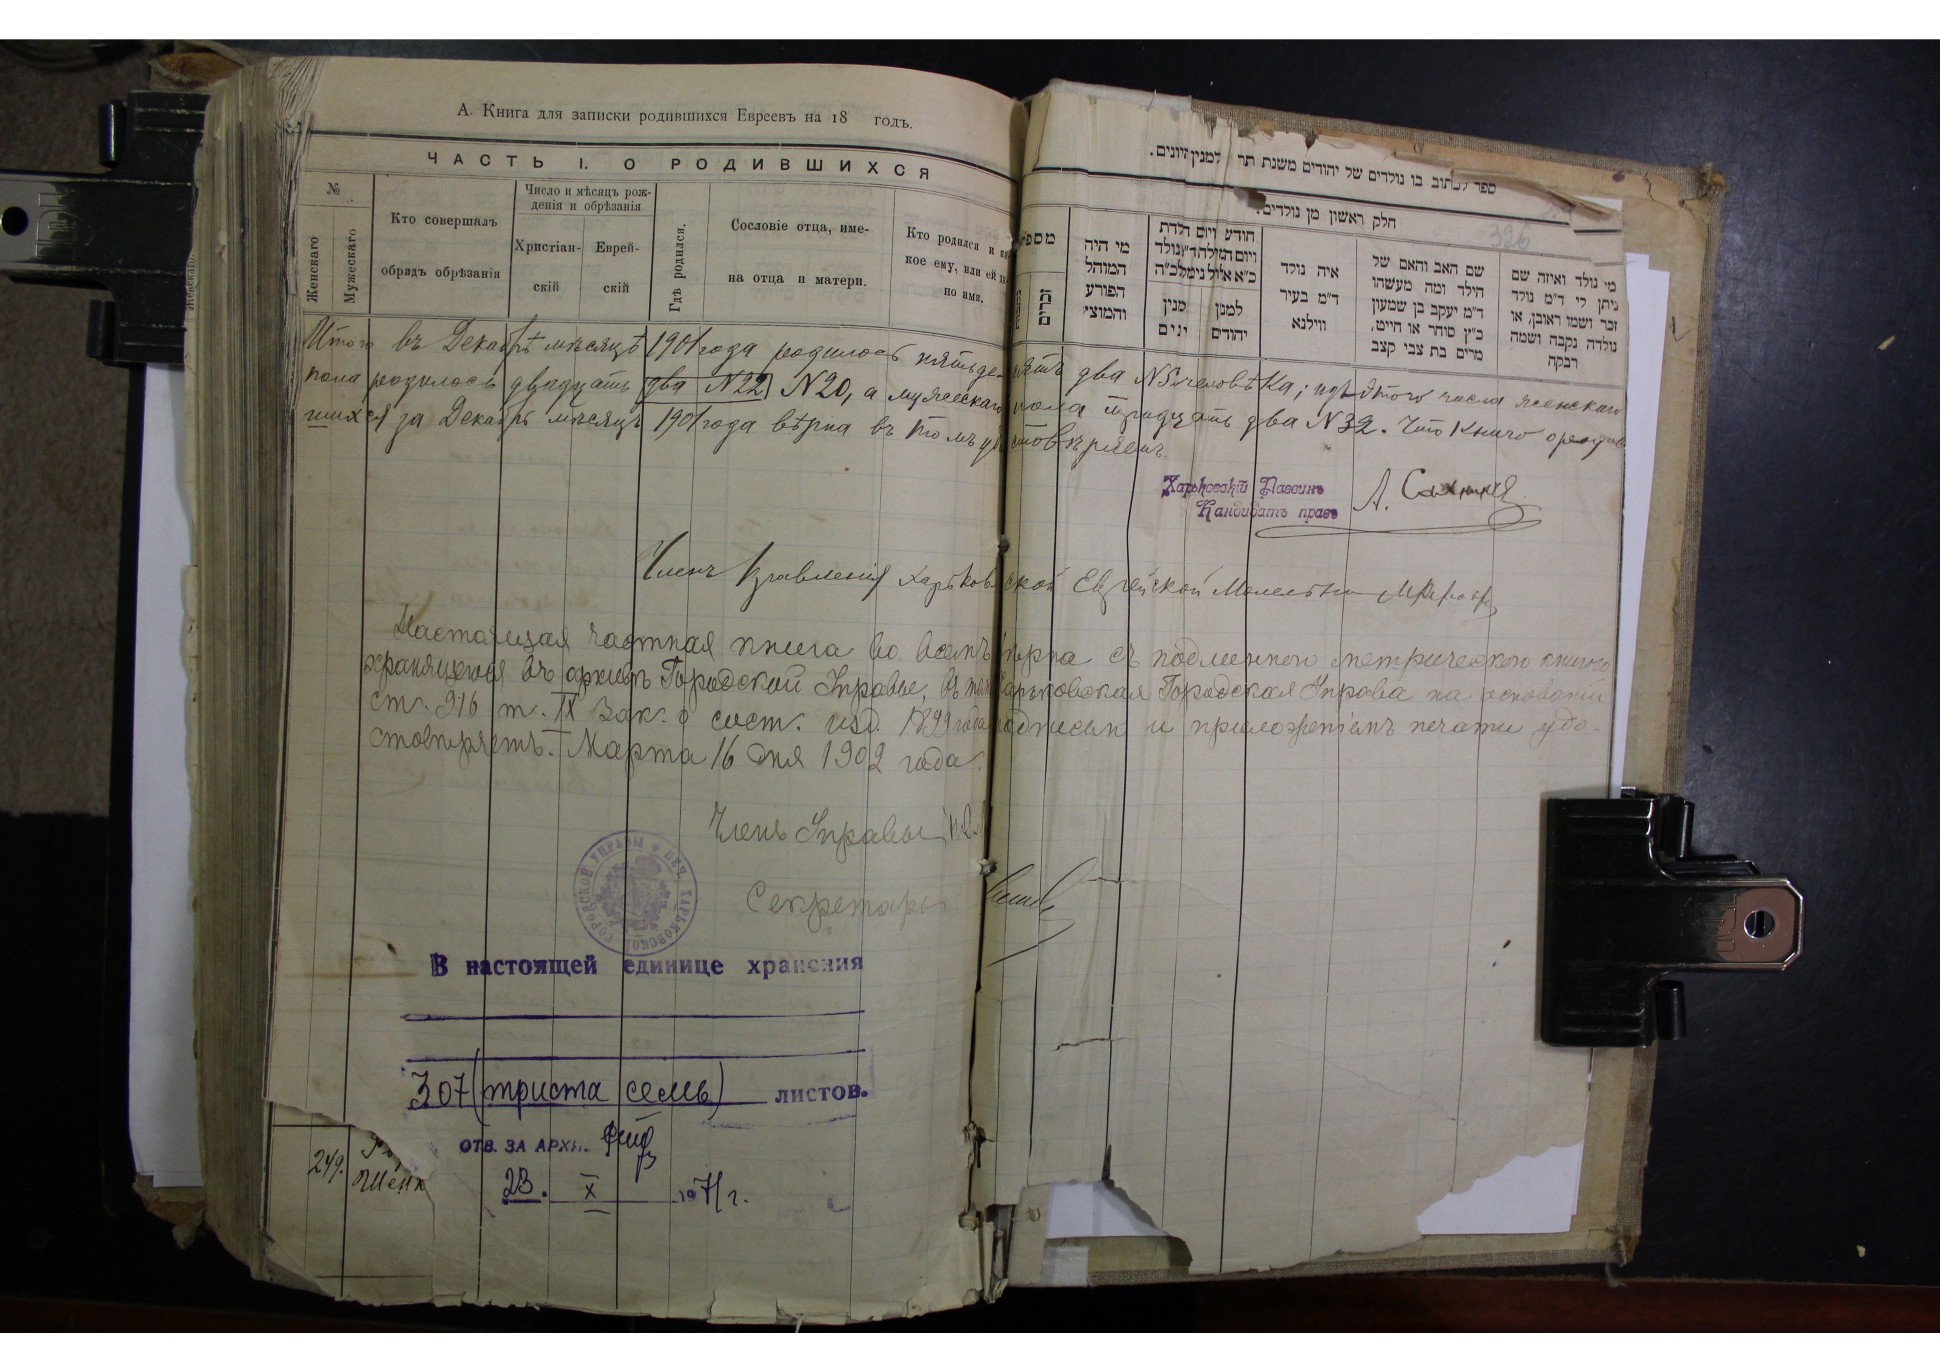 А. Книга для записки родившихся Евреевъ на 18 годъ.
ЧАСТЬ I. О РОДИВШИХСЯ
№
Женскаго
Мужескаго
Кто совершалъ
обрядъ обрѣзанія
Число и мѣсяцъ рож-
денія и обрѣзанія
Христіан-
скій
Еврей-
скій
Гдѣ родился.
Сословіе отца, име-
на отца и матери.
Кто родился и ка-
кое ему, или ей
но имя.
ספר לכתוב בו נולדים של יהודים משנת תר למנין יונים.
חלק ראשון מן נולדים.
326
זכרים
מי היה
המוהל
הפורע
והמוצי
חודש ויום הלדת
למנין
יהודים
מנין
ינים
איה נולד
ד"מ בעיר
ווילנא
שם האב והאם של
הילד ומה מעשהו
ד"מ יעקב בן שמעון
כ"ץ סוחר או חייט,
מרים בת צבי קצב
מי נולד ואיזה שם
ניתן לי ד"מ נולד
זכר ושמו ראובן, או
נולדה נקבה ושמה
רבקה
Итого въ Декабрѣ мѣсяцѣ 1901 года родилось пятьдесятъ два № человѣка; изъ этого числа женскаго
пола родилось двадцать (два №22) №20, а мужескаго пола тридцать два №32. Что книга о родив-
шихся за Декабрь мѣсяцъ 1901 года вѣрна въ томъ удостовѣряемъ.
Харьковскій Раввинъ
Кандидатъ правъ
А.
Членъ Правленія Харьковской Еврейской Молельни
Настоящая частная книга во всемъ вѣрна съ подлинного метрическою книгою
хранящеюся въ архивѣ Городской Управы, въ чемъ Харьковская Городская Управа на основаніи
ст. 916 т. IX Зак. о сост. изд. 1899 года подписью и приложеніемъ печати удо-
стовѣряетъ. Марта 16 дня 1902 года.
Членъ Управы
Секретарь
ПЕЧ. ХАРЬКОВСКОЙ ГОРОДСКОЙ УПРАВЫ
В настоящей единице хранения
307 (триста семь) листов.
ОТВ. ЗА АРХИВ
23. X 1971 г.
249.